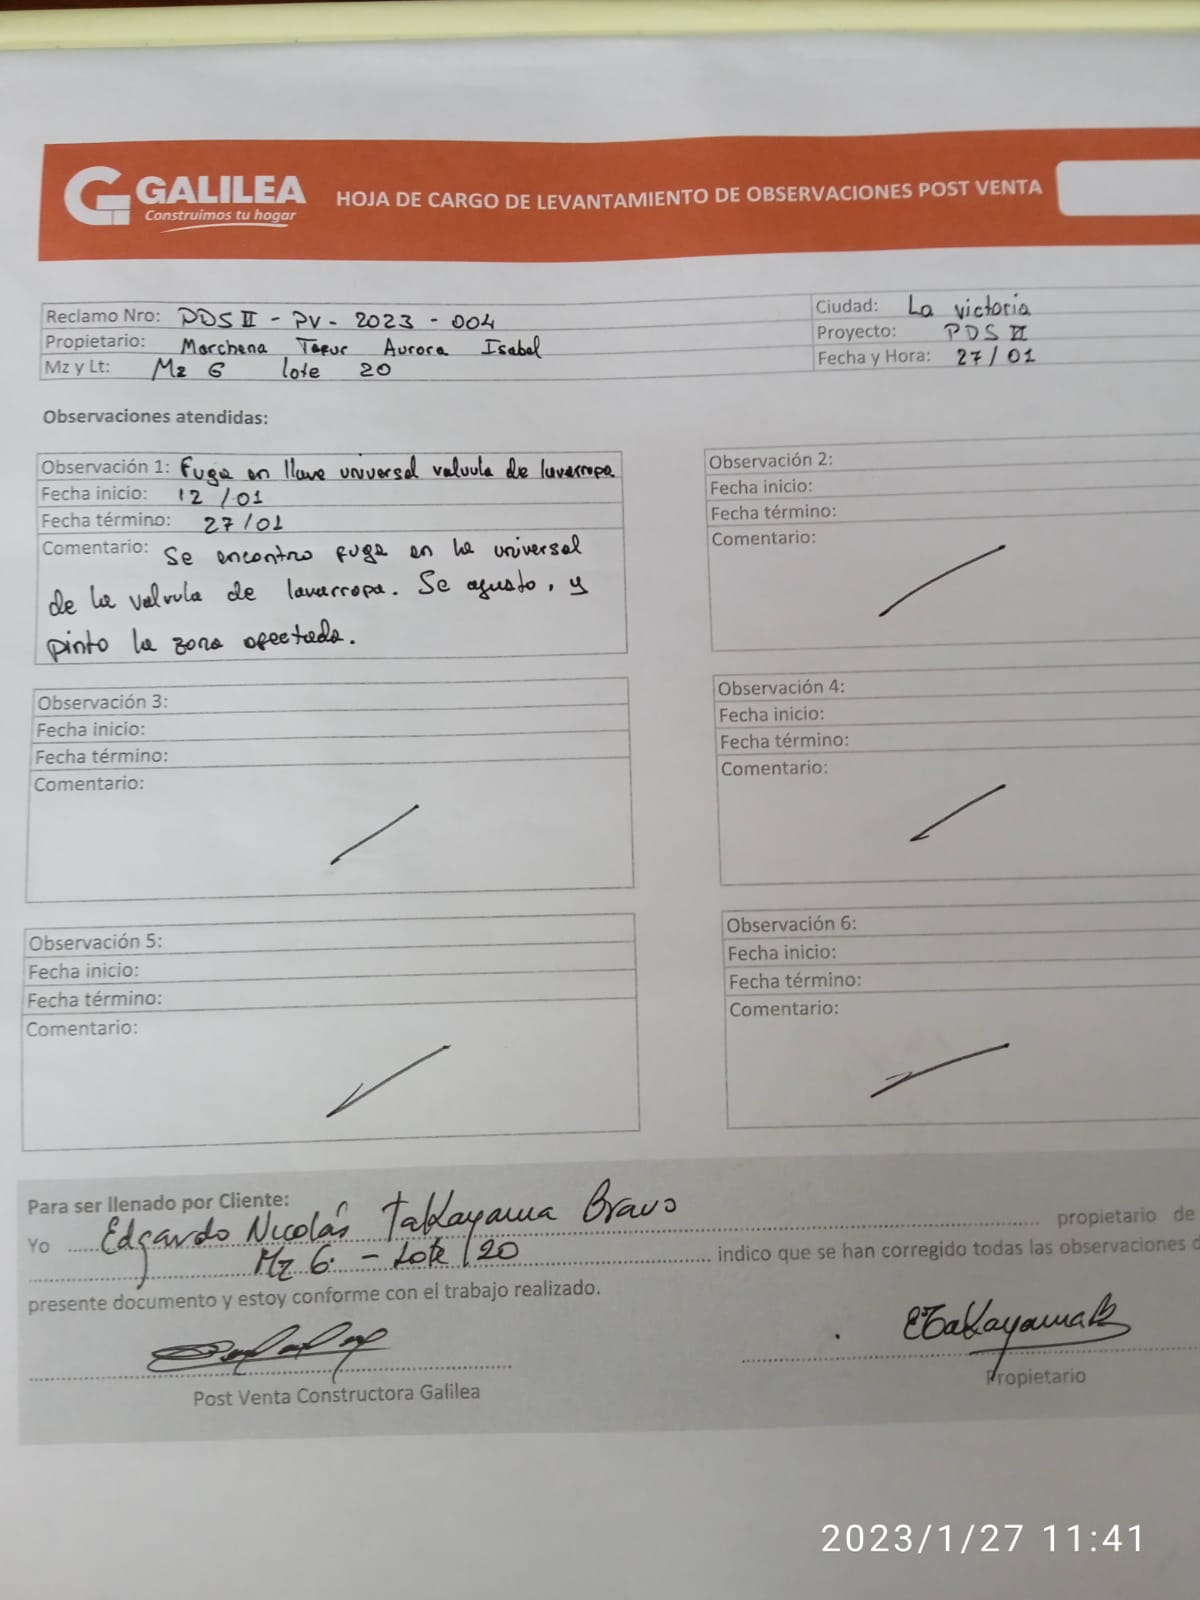 GALILEA
Construimos tu hogar
HOJA DE CARGO DE LEVANTAMIENTO DE OBSERVACIONES POST VENTA
Reclamo Nro: PDS II - PV - 2023 - 004
Ciudad: La victoria
Propietario: Marchena Tafur Aurora Isabel
Proyecto: PDS II
Mz y Lt: Mz G lote 20
Fecha y Hora: 27/01
Observaciones atendidas:
Observación 1: Fuga en llave universal valvula de lavarropa
Fecha inicio: 12/01
Fecha término: 27/01
Comentario: Se encontro fuga en la universal
de la valvula de lavarropa. Se ajusto, y
pinto la zona afectada.
Observación 2:
Fecha inicio:
Fecha término:
Comentario:
Observación 3:
Fecha inicio:
Fecha término:
Comentario:
Observación 4:
Fecha inicio:
Fecha término:
Comentario:
Observación 5:
Fecha inicio:
Fecha término:
Comentario:
Observación 6:
Fecha inicio:
Fecha término:
Comentario:
Para ser llenado por Cliente:
Yo Edgardo Nicolás Takayama Bravo propietario de
Mz G - Lote 20 indico que se han corregido todas las observaciones d
presente documento y estoy conforme con el trabajo realizado.
ETakayamaB
Post Venta Constructora Galilea
Propietario
2023/1/27 11:41